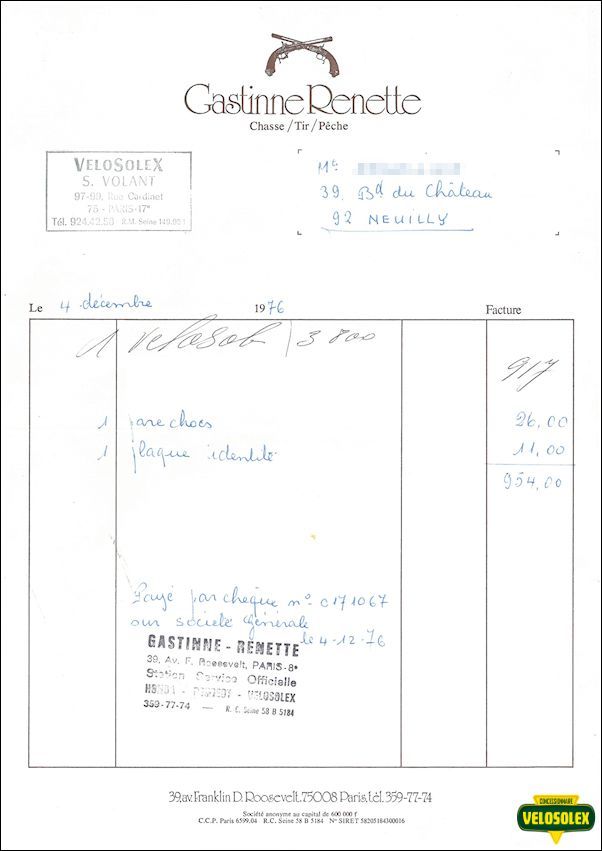 Gastinne Renette
Chasse / Tir / Pêche
VELOSOLEX
S. VOLANT
97-99, Rue Cardinet
75 - PARIS-17e
Tél. 924.42.58 R.M. Seine
Mr
39. Bd du Château
92 NEUILLY
Le 4 décembre 1976 Facture
1 Velosol 3800
917
1 pare chocs 26,00
1 plaque identité 11,00
954,00
Payé par chèque n° 0171067
sur société Générale
le 4-12-76
GASTINNE - RENETTE
39, Av. F. Roosevelt, PARIS-8e
Station Service Officielle
HONDA - PEUGEOT - VELOSOLEX
359-77-74 — R. C. Seine 58 B 5184
39.av.Franklin D. Roosevelt.75008 Paris.tél. 359-77-74
Société anonyme au capital de 600 000 f
C.C.P. Paris 6599.04 R.C. Seine 58 B 5184 No SIRET 58205184300016
CONCESSIONNAIRE
VELOSOLEX